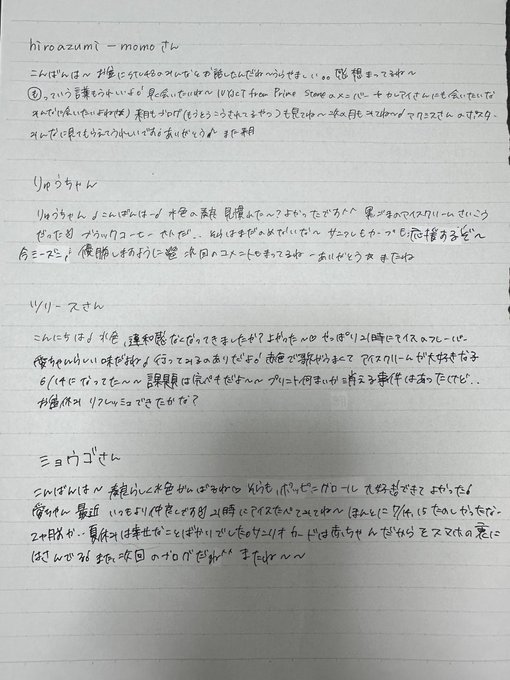 hiroazumi-momoさん
こんばんは〜 お盆にSTU48のみんなとお話したんだね〜うらやましい。。感想まってるね〜
っていう言葉もうれしいよ♪ 見に会いたいね〜 (IV)ACT from Prime Storeのメンバー + カレアイさんにも会いたいな
みんなに会いたいよね 来月もブログ(もうとうこうされてるやつ)も見てね〜 次の月もみてね〜♪ マクニスさんのポスター
みんなに見てもらえてうれしいです♪ ありがとう♪ また来月
りゅうちゃん
りゅうちゃん♪こんばんは〜♪ 水色の 見慣れた〜?よかったです^^ 黒ごまのアイスクリームさいこう
だった ブラックコーヒー だ.. それはまだのめないな〜 サンフレもカープも応援するぞ〜
今シーズン 優勝しますように 次回のコメントもまってるね〜ありがとう☆ またね
ツリースさん
こんにちは♪ 水色、違和感なくなってきましたか? よかった〜♡ やっぱり21時にアイスのフレーバー
愛ちゃんらしい味だよね♪ 行ってみるのありだよ♪ 水色で歌がうまくて アイスクリームが大好きな子
6/14になってた〜〜 課題は完ぺきだよ〜〜 プリント何まいか消える事件はあったけど..
お盆休み リフレッシュできたかな?
ショウゴさん
こんばんは〜 らしく水色がんばるね♡ そらも、ポッピンガロール 大好きできてよかった♪
愛ちゃん 最近 いつもより仲良しです 21時にアイスたべてみてね〜 ほんとに 7/14,15 たのしかったな〜
2ヶ月か.. 夏休みは幸せなことばかりでした♪サンリオカードは赤ちゃんだからモスマホの裏に
はさんでる♪ また次回のブログだね^^ またね〜〜